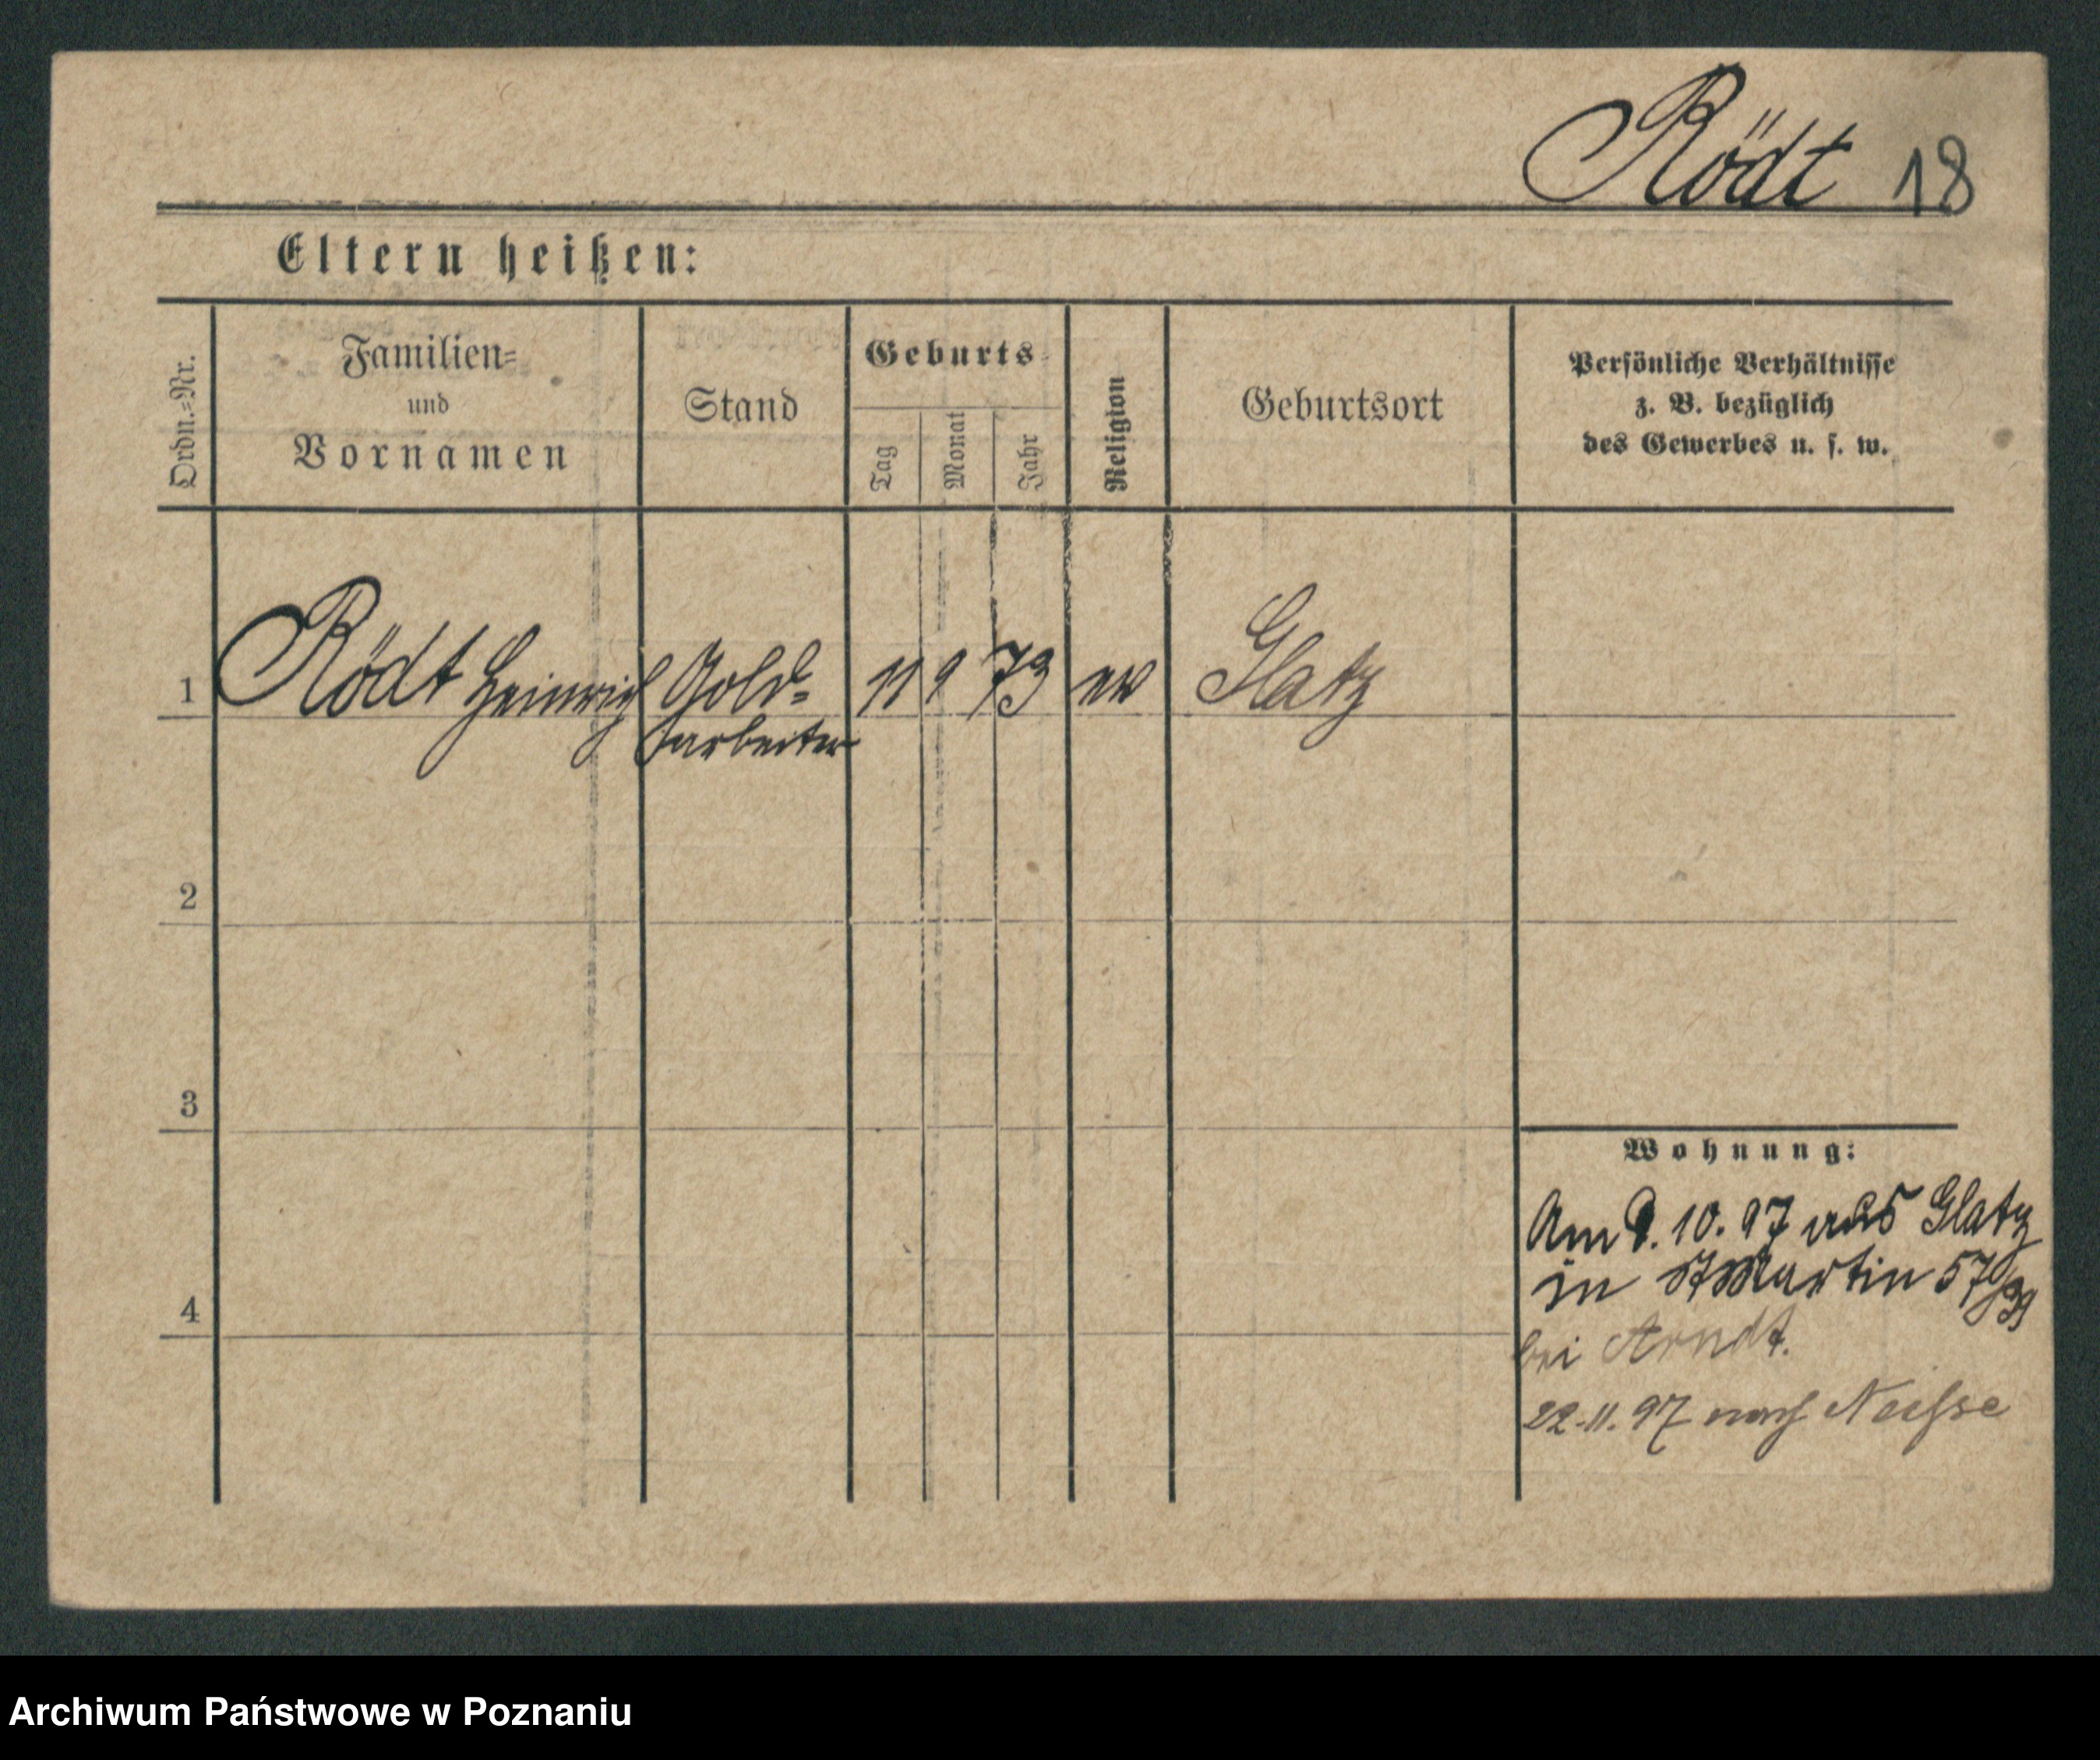 Rödt 18
Eltern heißen:
Ordn.-Nr.
Familien-
und
Vornamen
Stand
Geburts-
Tag
Monat
Jahr
Religion
Geburtsort
Persönliche Verhältnisse
z. B. bezüglich
des Gewerbes u. s. w.
1 Rödt Heinrich Gold- 11 9 73 ev Glatz
arbeiter
2
3
4
Wohnung:
Am 10. 97 aus Glatz
in St Martin 57
bei Arndt.
22.11.97 nach Neisse
Archiwum Państwowe w Poznaniu